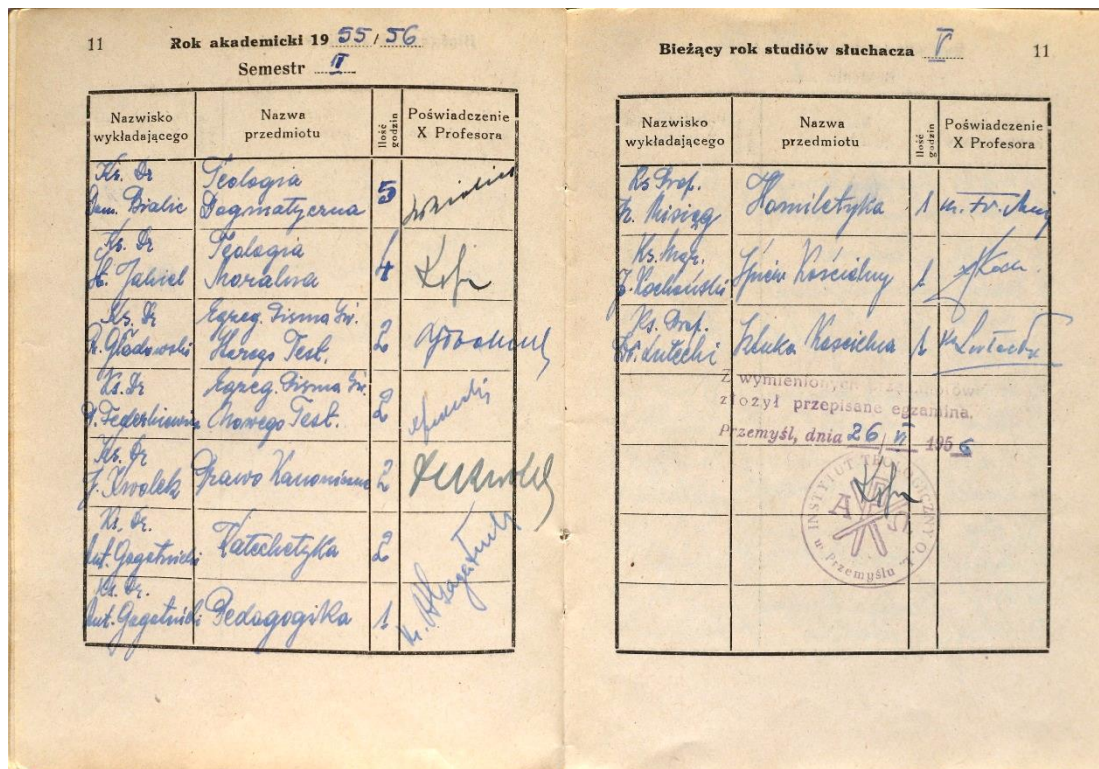 11
Rok akademicki 19 55/56
Semestr II
Nazwisko wykładającego
Nazwa przedmiotu
Ilość godzin
Poświadczenie X Profesora
Ks. Dr
Dom. Bialic
Teologia
Dogmatyczna
5
Ks. Dr
St. Jakiel
Teologia
Moralna
4
Ks. Dr
R. Głodowski
Egzeg. Pisma Św.
Starego Test.
2
Ks. Dr
Egzeg. Pisma Św.
Nowego Test.
2
Ks. Dr
J. Kwolek
Prawo Kanoniczne
2
Ks. Dr.
Ant. Gagatnicki
Katechetyka
2
Ks. Dr.
Ant. Gagatnicki
Pedagogika
1
Bieżący rok studiów słuchacza V
11
Nazwisko wykładającego
Nazwa przedmiotu
Ilość godzin
Poświadczenie X Profesora
Ks Prof.
Fr. Misiąg
Homiletyka
1
Ks. Mgr.
J. Kochański
Śpiew Kościelny
1
Ks. Prof.
Sztuka Kościelna
Z wymienionych przedmiotów
złożył przepisane egzamina.
Przemyśl, dnia 26/VI 1956
INSTYTUT TEOLOGICZNY O. Ł.
w Przemyślu